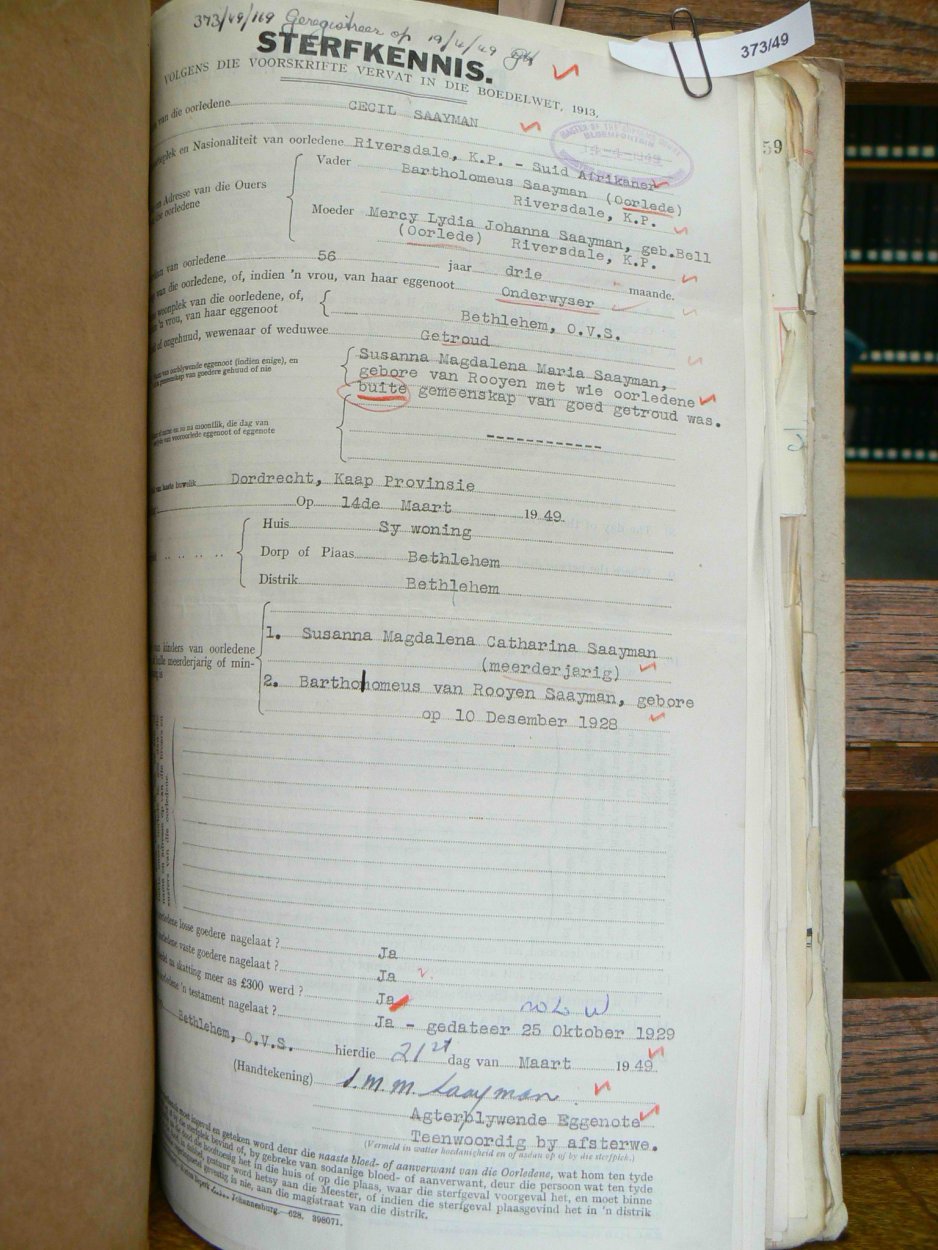 373/49/169 Geregistreer op 19/4/49
STERFKENNIS.
373/49
VOLGENS DIE VOORSKRIFTE VERVAT IN DIE BOEDELWET, 1913,
van die oorledene CECIL SAAYMAN
MASTER OF THE SUPREME COURT
BLOEMFONTEIN
59
en Nasionaliteit van oorledene Riversdale, K.P. - Suid Afrikaner
Adresse van die Ouers oorledene
Vader Bartholomeus Saayman (Oorlede)
Riversdale, K.P.
Moeder Mercy Lydia Johanna Saayman, geb.Bell
(Oorlede) Riversdale, K.P.
van oorledene 56 jaar drie maande.
van die oorledene, of, indien 'n vrou, van haar eggenoot Onderwyser
woonplek van die oorledene, of,
'n vrou, van haar eggenoot Bethlehem, O.V.S.
of ongehuud, wewenaar of weduwee Getroud
van oorblywende eggenoot (indien enige), en
gemeenskap van goedere gehuud of nie
Susanna Magdalena Maria Saayman,
gebore van Rooyen met wie oorledene
buite gemeenskap van goed getroud was.
moontlik, die dag van
van vooroorlede eggenoot of eggenote ------------
van laaste huwelik Dordrecht, Kaap Provinsie
Op 14de Maart 1949.
Huis Sy woning
Dorp of Plaas Bethlehem
Distrik Bethlehem
kinders van oorledene
hulle meerderjarig of min-
1. Susanna Magdalena Catharina Saayman
(meerderjarig)
2. Bartholomeus van Rooyen Saayman, gebore
op 10 Desember 1928
losse goedere nagelaat? Ja
vaste goedere nagelaat? Ja
skatting meer as £300 werd? Ja
'n testament nagelaat? Ja - gedateer 25 Oktober 1929
Bethlehem, O.V.S. hierdie 21st dag van Maart 1949
(Handtekening) S.M.M. Saayman
Agterblywende Eggenote
Teenwoordig by afsterwe.
(Vermeld in watter hoedanigheid en of aldan of by die sterfplek.)
moet ingevul en geteken word deur die naaste bloed- of aanverwant van die Oorledene, wat hom ten tyde
sterfplek bevind of, by gebreke van sodanige bloed- of aanverwant, deur die persoon wat ten tyde
die hooftoesig het in die huis of op die plaas, waar die sterfgeval voorgeval het, en moet binne
gestuur word hetsy aan die Meester, of indien die sterfgeval plaasgevind het in 'n distrik
gevestig is nie, aan die magistraat van die distrik.
Johannesburg.—628, 398071.